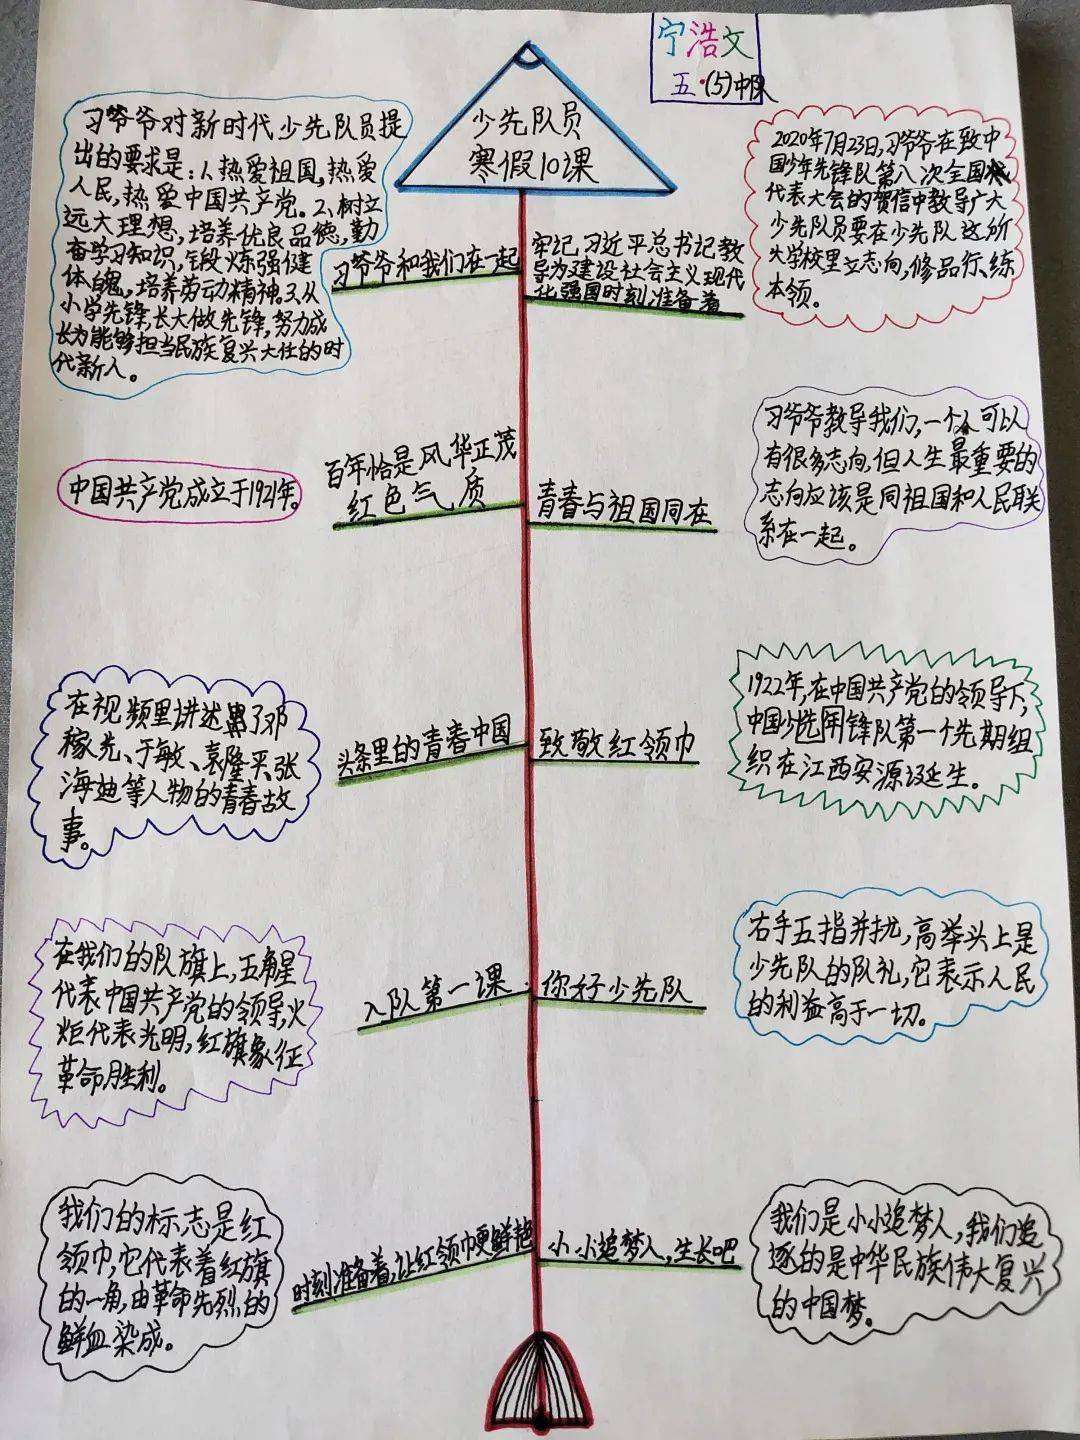 宁浩文
五·(5)中队
少先队员
寒假10课
习爷爷对新时代少先队员提
出的要求是:1、热爱祖国,热爱
人民,热爱中国共产党。2、树立
远大理想,培养优良品德,勤
奋学习知识,锻炼强健
体魄,培养劳动精神。3、从
小学先锋,长大做先锋,努力成
长为能够担当民族复兴大任的时
代新人。
习爷爷和我们在一起
牢记习近平总书记教
导为建设社会主义现代
化强国时刻准备着
2020年7月23日,习爷爷在致中
国少年先锋队第八次全国
代表大会的贺信中教导广大
少先队员要在少先队这所
大学校里立志向,修品行、练
本领。
百年恰是风华正茂
红色气质
中国共产党成立于1921年。
青春与祖国同在
习爷爷教导我们,一个人可以
有很多志向,但人生最重要的
志向应该是同祖国和人民联
系在一起。
头条里的青春中国
在视频里讲述了邓
稼先、于敏、袁隆平、张
海迪等人物的青春故
事。
致敬红领巾
1922年,在中国共产党的领导下,
中国少年锋队第一个先期组
织在江西安源诞生。
入队第一课
在我们的队旗上,五角星
代表中国共产党的领导,火
炬代表光明,红旗象征
革命胜利。
你好少先队
右手五指并拢,高举头上是
少先队的队礼,它表示人民
的利益高于一切。
时刻准备着,让红领巾更鲜艳
我们的标志是红
领巾,它代表着红旗
的一角,由革命先烈的
鲜血染成。
小小追梦人,生长吧
我们是小小追梦人,我们追
逐的是中华民族伟大复兴
的中国梦。